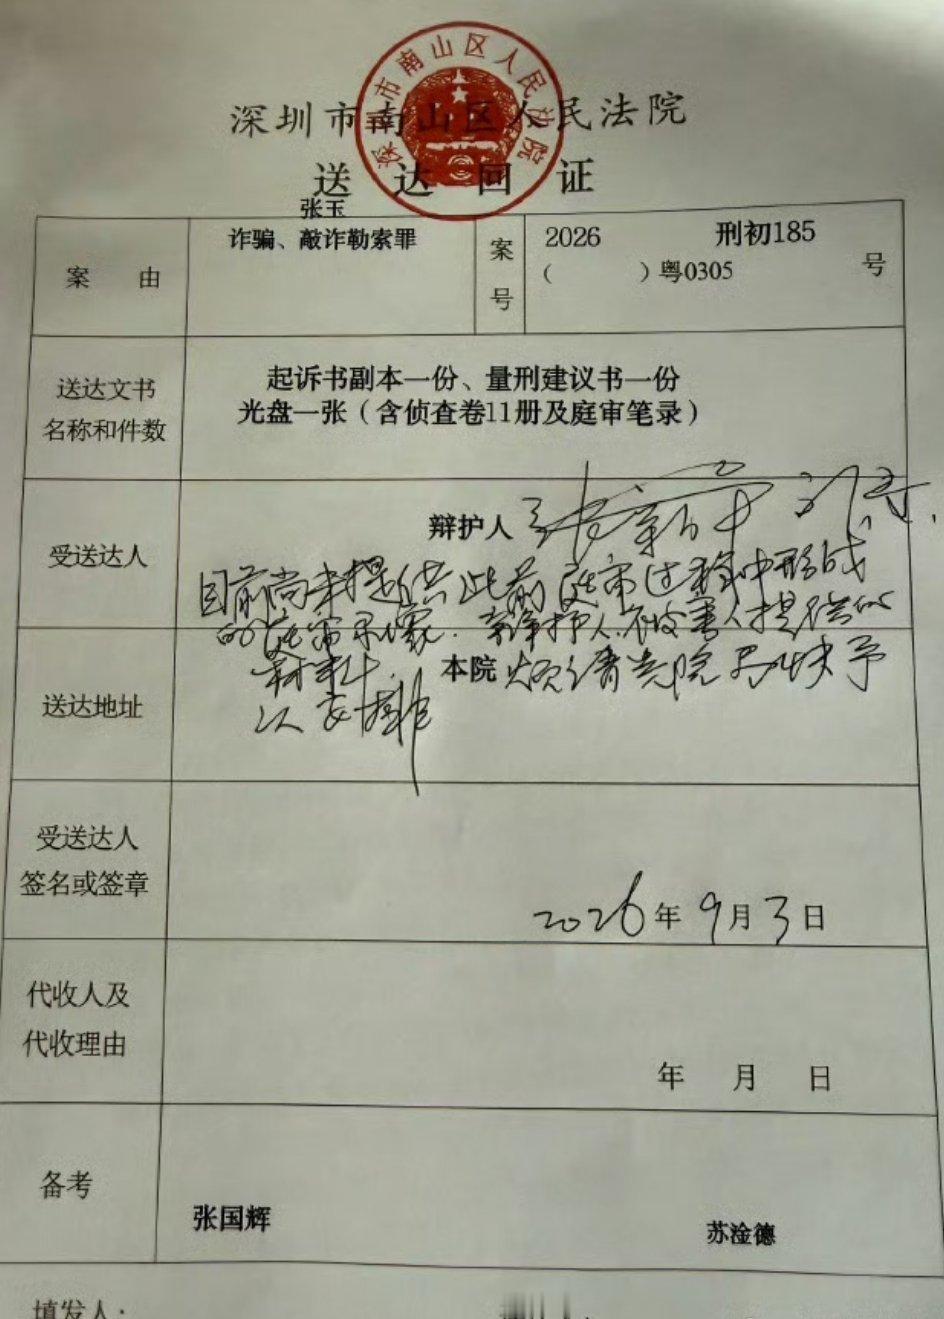 深圳市南山区人民法院
深圳市南山区人民法院
送达回证
案由
张玉
诈骗、敲诈勒索罪
案号
2026 刑初185
( )粤0305 号
送达文书
名称和件数
起诉书副本一份、量刑建议书一份
光盘一张（含侦查卷11册及庭审笔录）
受送达人
辩护人
目前尚未提供此前庭审过程中形成
的庭审录像.辩护人.被害人提供的
材料.
送达地址
本院
烦请贵院尽快予
以安排
受送达人
签名或签章
2026年9月3日
代收人及
代收理由
年 月 日
备考
张国辉
苏淦德
填发人：